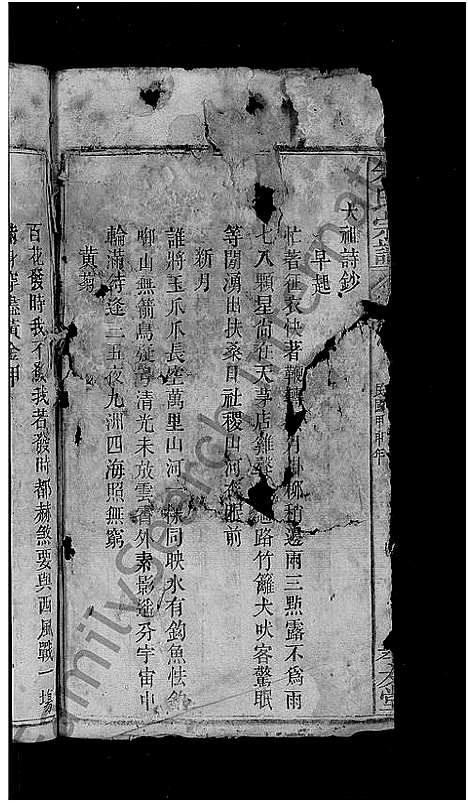 朱氏宗譜
民國甲申年
太祖詩鈔
早起
忙著征衣快著鞭 月掛柳稍邊雨三點露不爲雨
七八顆星尚在天茅店雞 路竹籬犬吠客驚眠
等閒湧出扶桑日社稷山河 眼前
新月
誰將玉爪爪長空萬里山河一樣同映水有鈎魚怯釣
啣山無箭鳥疑弓清光未放雲霄外素影遙分宇宙中
輪滿待逢二五夜九洲四海照無窮
黃菊
百花發時我不發我若發時都赫煞要與西風戰一場
滿身穿盡黃金甲
FamilySearch International